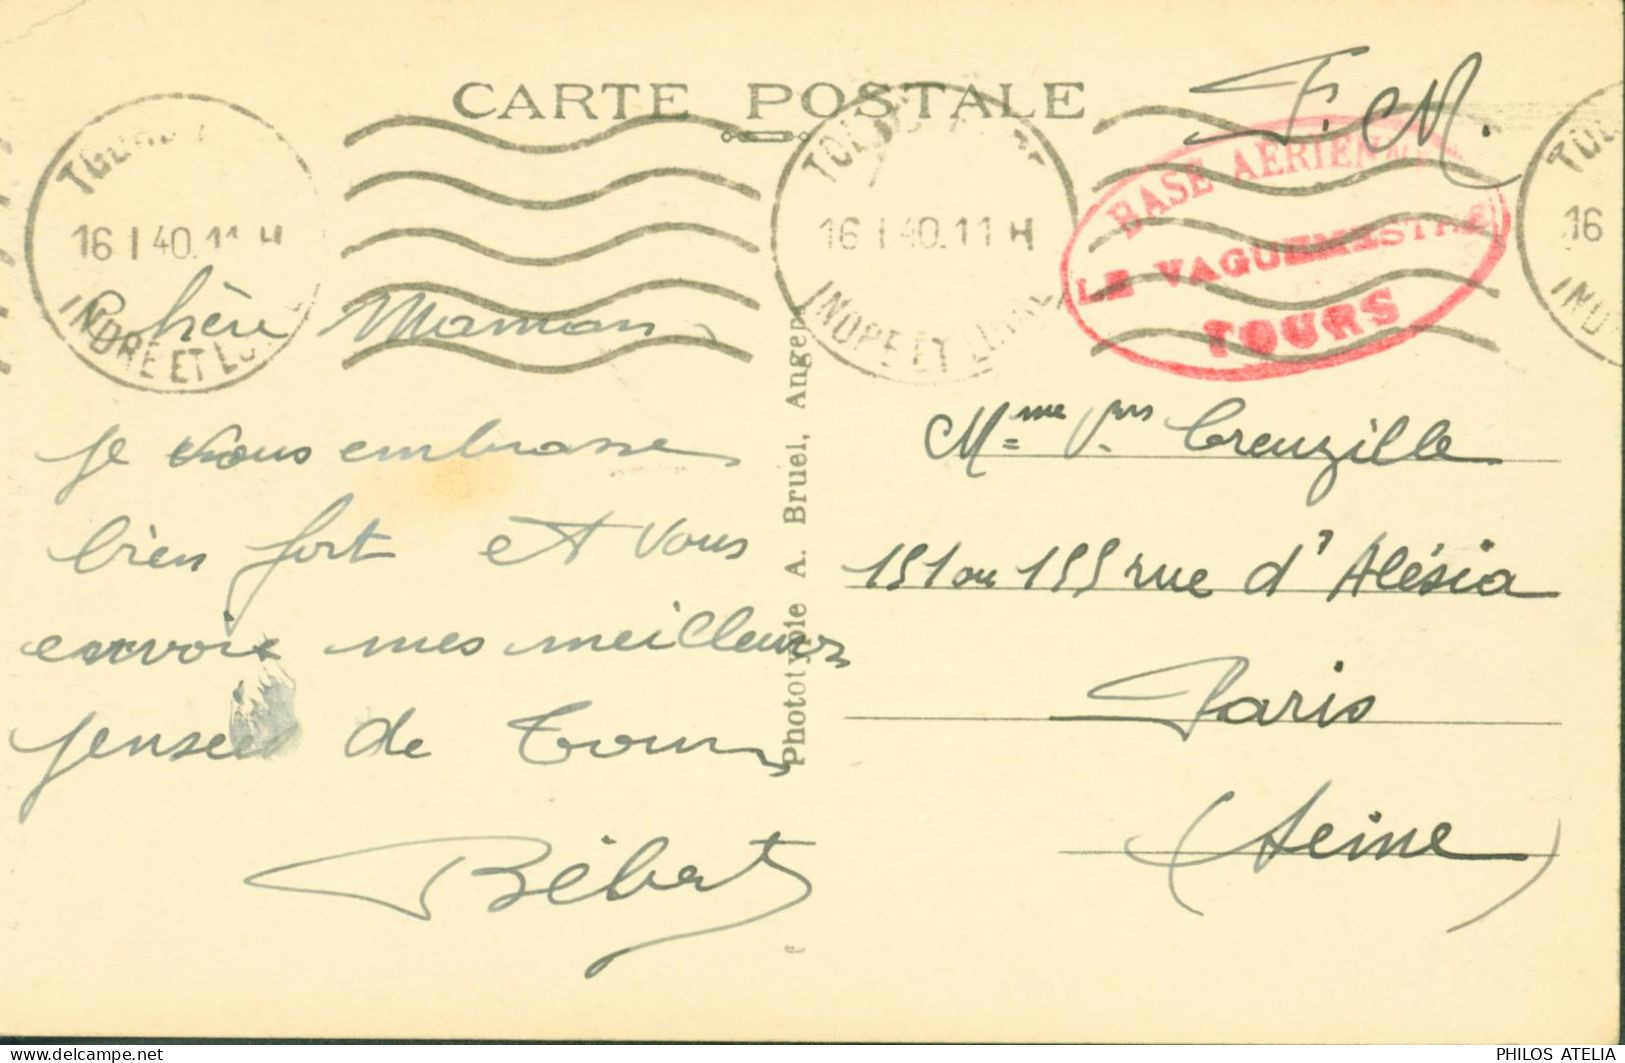 CARTE POSTALE
F. M.
16 I 40.11 H
INDRE ET
16 I 40.11 H
INDRE ET
16
BASE AÉRIENNE
LE VAGUEMESTRE
TOURS
Chère Maman
je vous embrasse
bien fort et vous
envoie mes meilleurs
pensée de Tours
Bébert
Phototypie A. Bruel, Angers
Mme Creuzille
151 ou 155 rue d'Alésia
Paris
(Seine)
© PHILOS ATELIA
delcampe.net
PHILOS ATELIA